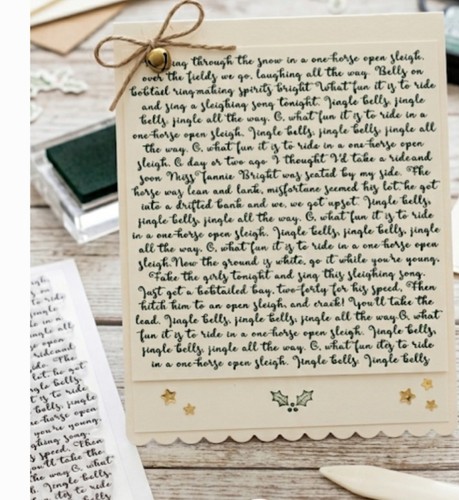 through the snow in a one-horse open sleigh,
over the fields we go, laughing all the way. Bells on
bobtail ring making spirits bright What fun it is to ride
and sing a sleighing song tonight. Jingle bells, jingle
bells, jingle all the way. O, what fun it is to ride in a
one-horse open sleigh. Jingle bells, jingle bells, jingle all
the way. O, what fun it is to ride in a one-horse open
sleigh. A day or two ago I thought I'd take a ride and
soon Miss Fannie Bright was seated by my side. The
horse was lean and lank, misfortune seemed his lot, he got
into a drifted bank and we, we got upset. Jingle bells,
jingle bells, jingle all the way. O, what fun it is to ride
in a one-horse open sleigh. Jingle bells, jingle bells, jingle
all the way. O, what fun it is to ride in a one-horse open
sleigh. Now the ground is white, go it while you're young,
Take the girls tonight and sing this sleighing song.
Just get a bobtailed bay, two-forty for his speed, Then
hitch him to an open sleigh, and crack! You'll take the
lead. Jingle bells, jingle bells, jingle all the way. O, what
fun it is to ride in a one-horse open sleigh. Jingle bells,
jingle bells, jingle all the way. O, what fun it is to ride
in a one-horse open sleigh. Jingle bells, Jingle bells